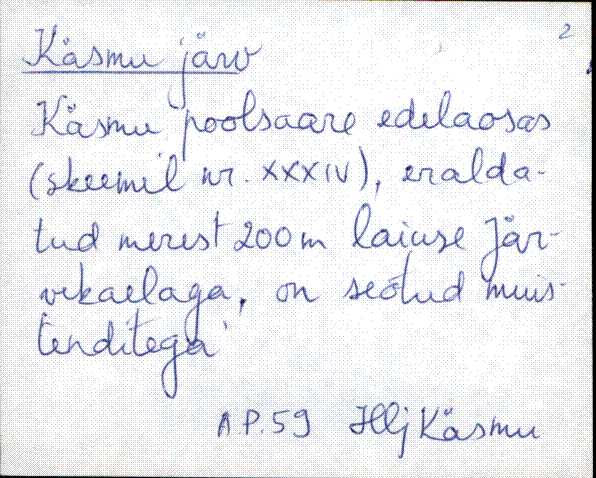 2
Käsmu järv
Käsmu poolsaare edelaosas
(skeemil nr. XXXIV), eralda-
tud merest 200 m laiuse Jär-
vekaelaga, on seotud muis-
tenditega
A.P.59 Hlj Käsmu